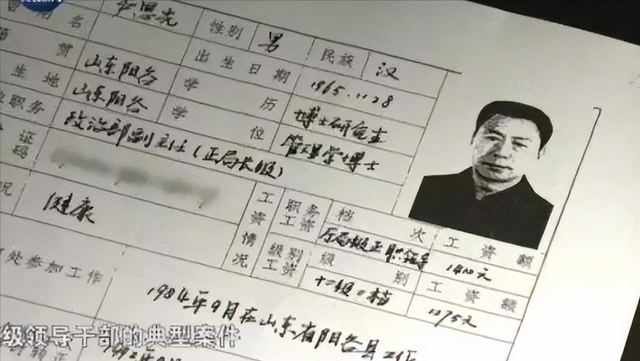 姓名 思 性别 男 民族 汉
籍贯 山东阳谷 出生日期 1965.11.28
出生地 山东阳谷 学历 博士研究生
职务 政治部副主任（正局长级） 学位 管理学博士
证
码
健康 工资情况 职务工资 档次 厅局级正职 工资额 1410元
况 级别工资 级别 十一级 档 工资额 1275元
何处参加工作 1984年9月在山东省阳谷县工作
级领导干部的典型案件